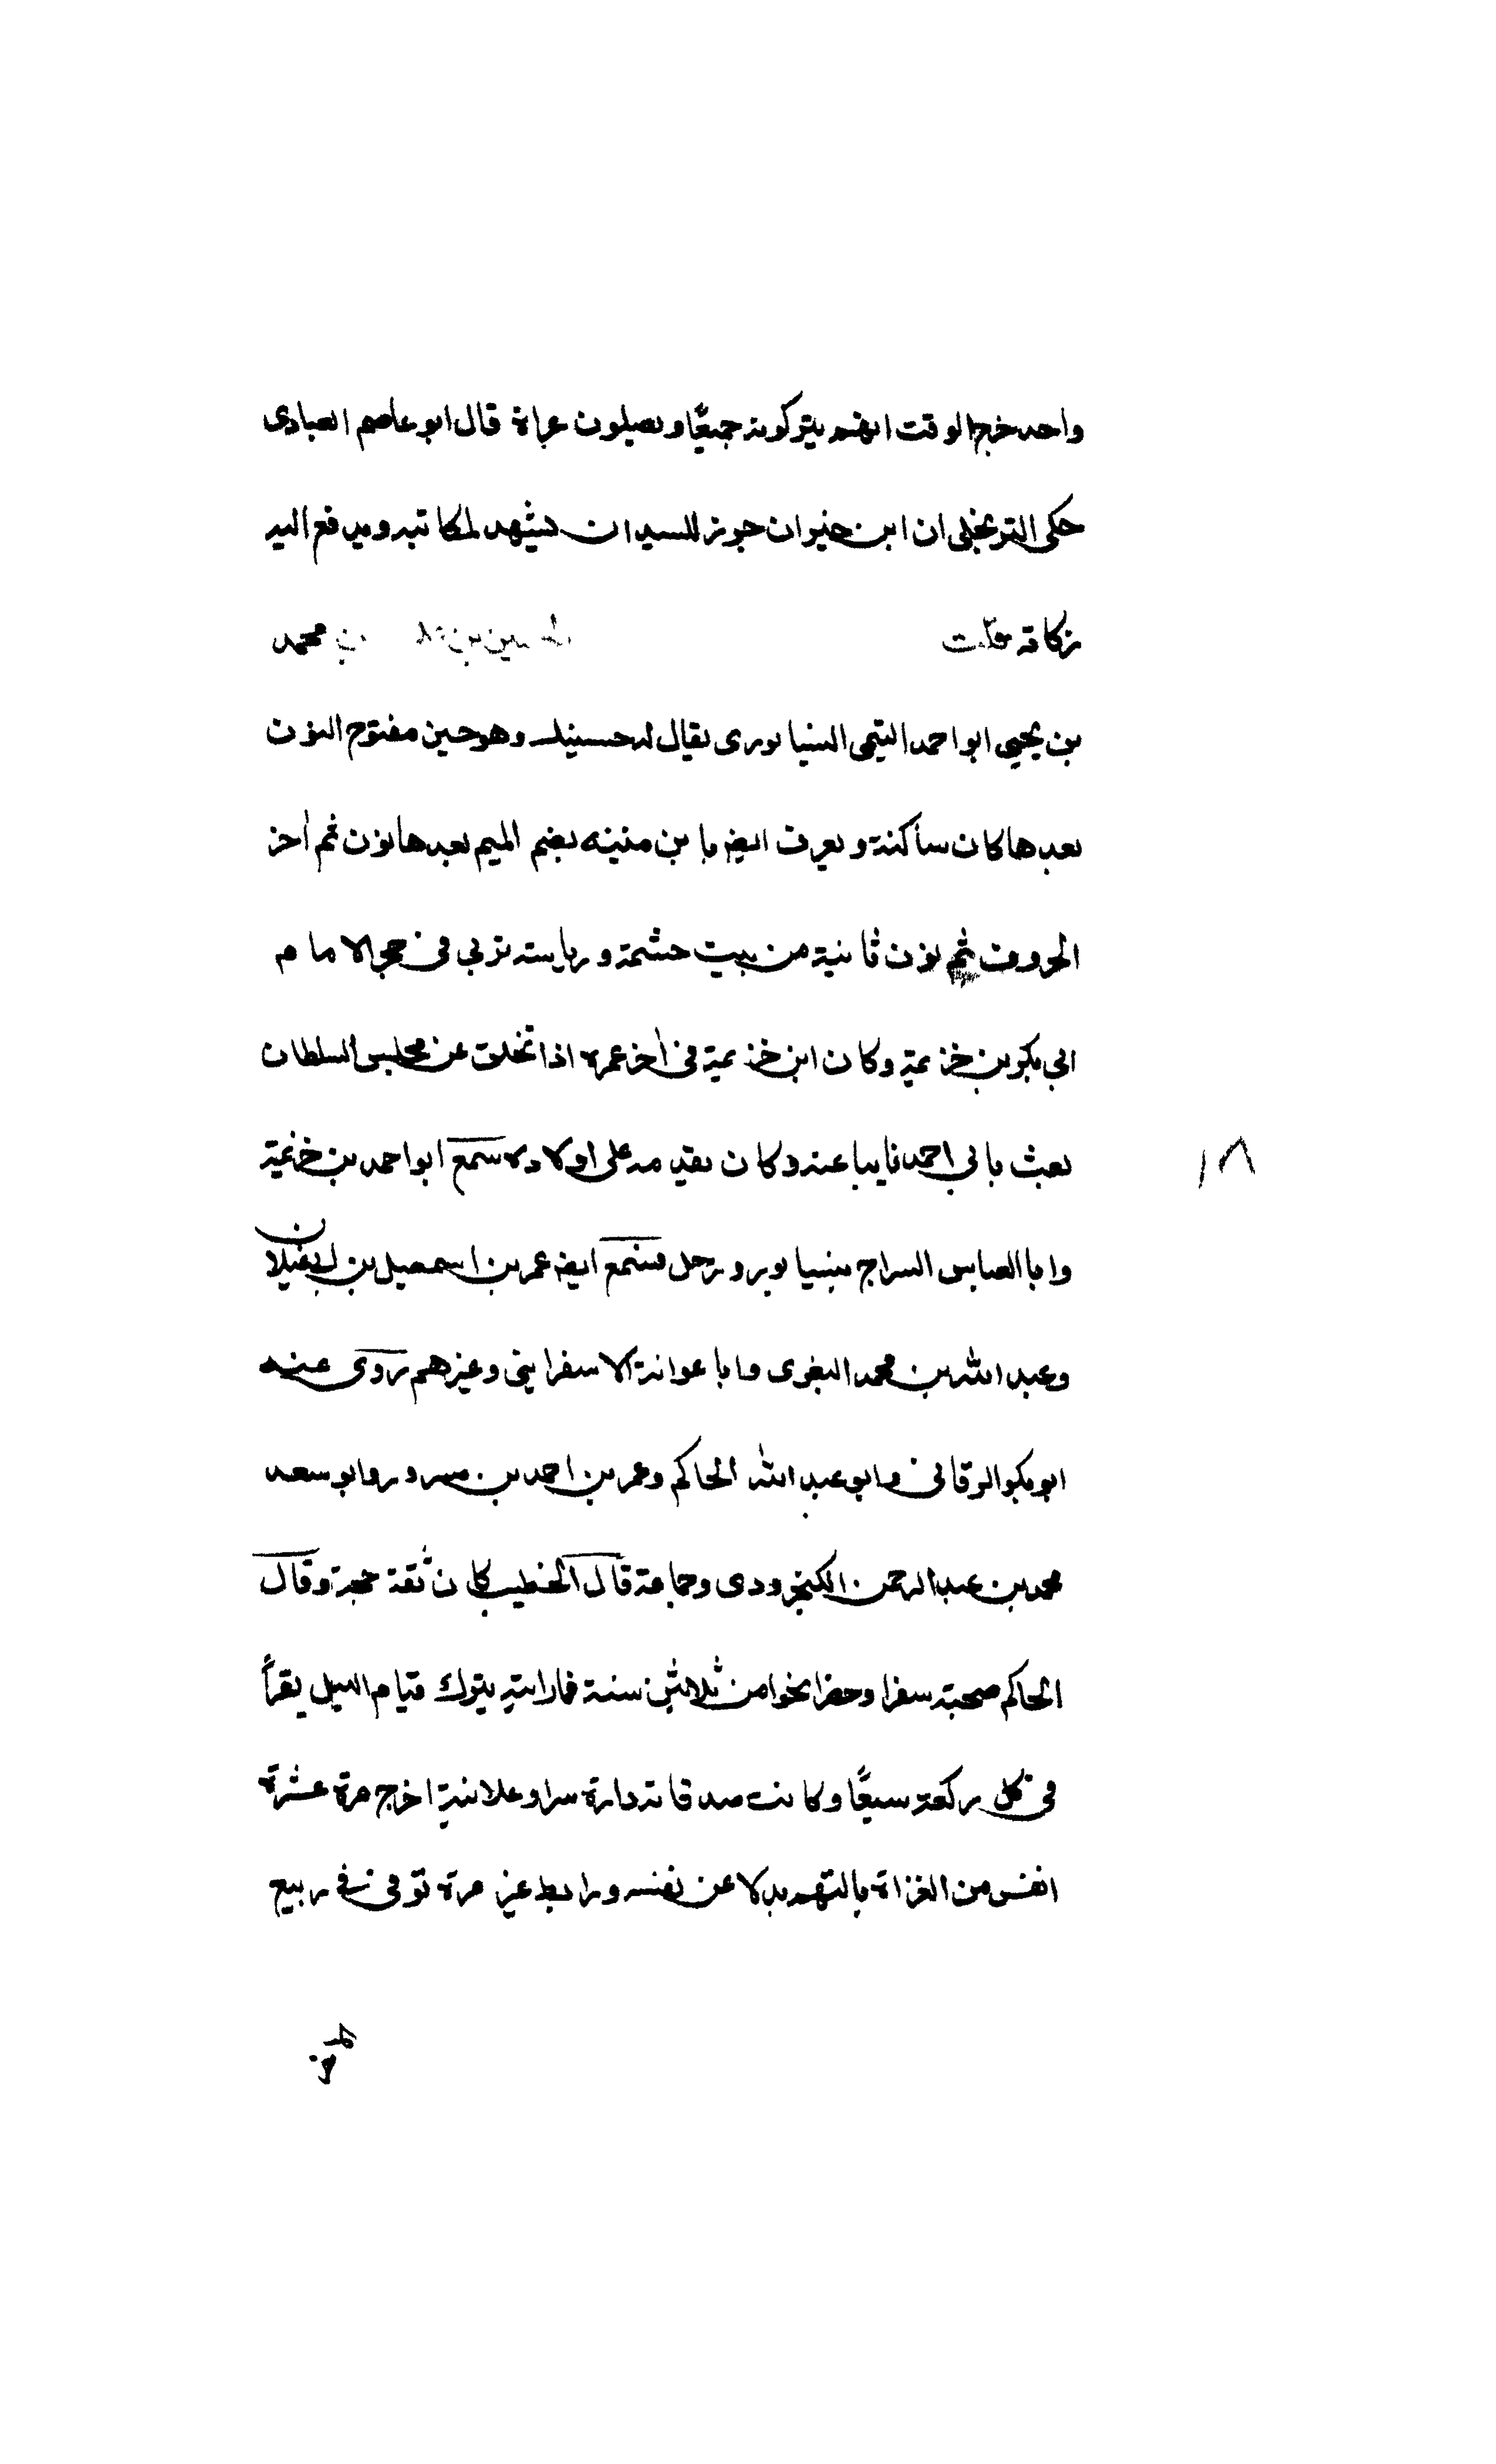 واحد خرج الوقت انهم يتركونه جميعًا ويصلون عراة قال ابو عاصم العبادى
حكى التوبخلى ان ابن خيران جوز للسيد ان يشهد لمكاتبه ويدفع اليه
زكاته قلت الحسين بن محمد
بن يحيى ابو احمد التيمى النيسابورى يقال له حسينك وهو حين مفتوح النون
بعدها كان ساكنة ويعرف ايضا بابن منينه بضم الميم بعدها نون ثم اخر
الحروف ثم نون ثانية من بيت حشمة ورياسته تربى فى حجر الامام
ابي بكر بن خزيمة وكان ابن خزيمة فى اخر عمره اذا تخلف عن مجلس السلطان
بعث بابي احمد نايبا عنه وكان يقدمه على اولاده سمع ابو احمد بن خزيمة
١٨
وابا العباس السراج بنيسابور ورحل فسمع ايضا عمر بن اسمعيل بن ابى غيلان
وعبد الله بن محمد البغوى وابا عوانة الاسفراينى وغيرهم روى عنه
ابو بكر البرقانى وابو عبد الله الحاكم وعمر بن احمد بن مسرور وابو سعد
محمد بن عبد الرحمن الكنجرودى وجماعة قال الخطيب كان ثقة حجة وقال
الحاكم صحبته سفرا وحضرا نحوا من ثلاثين سنة فما رايته يترك قيام الليل يقرأ
فى كل ركعة سبعًا وكانت صدقاته دارة سرا وعلانية اخرج مرة عشرة
انفس من الغزاة بالتهم بدلا عن نفسه ورابط غير مرة توفى فى ربيع